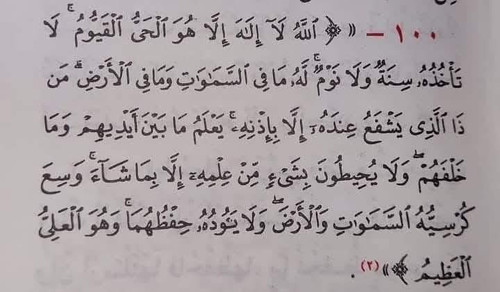 ١٠٠ – «﴿ ٱللَّهُ لَآ إِلَٰهَ إِلَّا هُوَ ٱلْحَىُّ ٱلْقَيُّومُ ۚ لَا
تَأْخُذُهُۥ سِنَةٌ وَلَا نَوْمٌ ۚ لَّهُۥ مَا فِى ٱلسَّمَٰوَٰتِ وَمَا فِى ٱلْأَرْضِ ۗ مَن
ذَا ٱلَّذِى يَشْفَعُ عِندَهُۥٓ إِلَّا بِإِذْنِهِۦ ۚ يَعْلَمُ مَا بَيْنَ أَيْدِيهِمْ وَمَا
خَلْفَهُمْ ۖ وَلَا يُحِيطُونَ بِشَىْءٍ مِّنْ عِلْمِهِۦٓ إِلَّا بِمَا شَآءَ ۚ وَسِعَ
كُرْسِيُّهُ ٱلسَّمَٰوَٰتِ وَٱلْأَرْضَ ۖ وَلَا يَـُٔودُهُۥ حِفْظُهُمَا ۚ وَهُوَ ٱلْعَلِىُّ
ٱلْعَظِيمُ ﴾» (٢) .